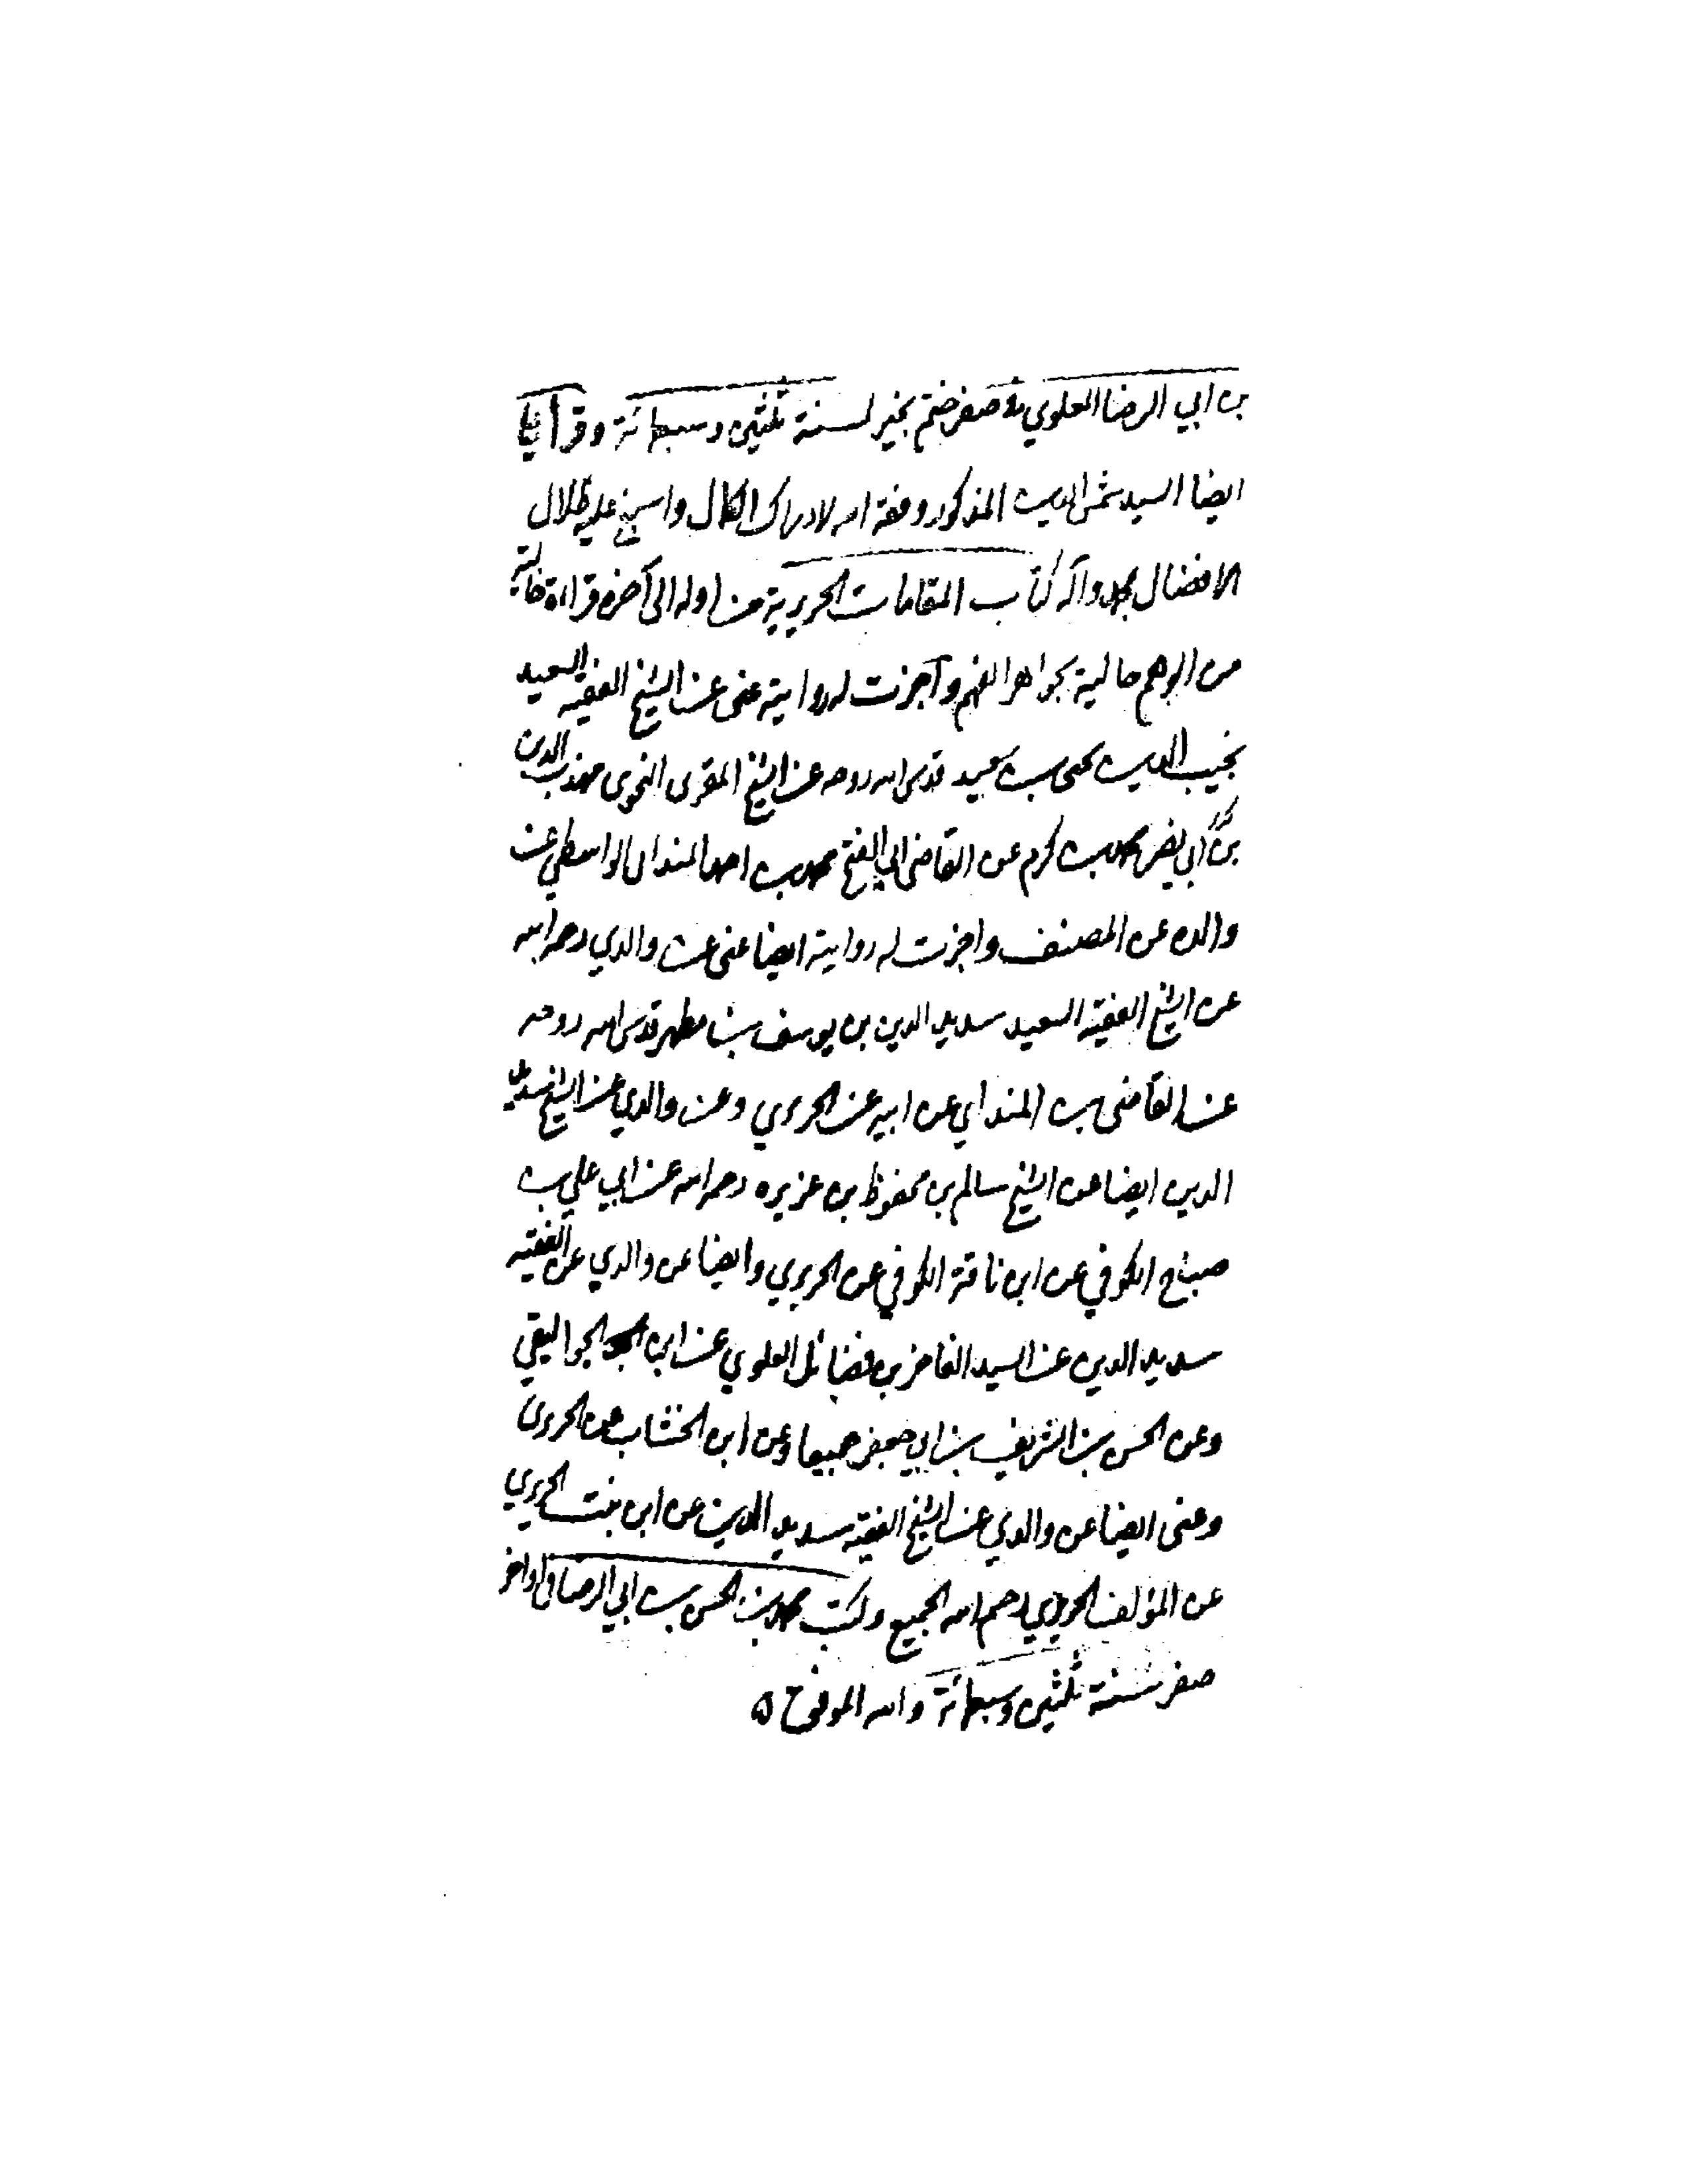 بن ابي الرضا العلوي في صفر ختم بخير لسنة ثلثين وسبعمائة وقرأ
ايضا السيد شمس الدين المذكور وفقه الله لادراك الكمال واسبغ عليه ظلال
الافضال بمحمد وآله كتاب المقامات الحريرية من اوله الى آخره قراءة خالية
من الوهم حالية بجواهر الفهم وآجزت له روايته عني عن الشيخ الفقيه السعيد
نجيب الدين يحيى بن سعيد قدس الله روحه عن الشيخ المقرى النحوى مهذب الدين
بن كرم ابي نصر محمد بن كرم عن القاضى ابي الفتح محمد بن احمد المنداى الواسطي عن
والده عن المصنف واجزت له روايته ايضا عنى عن والدي رحمه الله
عن الشيخ الفقيه السعيد سديد الدين بن يوسف بن مطهر قدس الله روحه
عن القاضى بن المنداي عن ابيه عن الحريري وعن والدي عن الشيخ سديد
الدين ايضا عن الشيخ سالم بن محفوظ بن عزيزه رحمه الله عن ابي علي بن
صباح الكوفي عن ابن ناقة الكوفي عن الحريري وايضا عن والدي عن الفقيه
سديد الدين عن السيد الفاخر بن فضائل العلوي عن ابن الجواليقي
وعن الحسن بن الشريف بن ابي جعفر جميعا وعن ابن الخشاب عن الحريرى
وعنى ايضا عن والدي عن الشيخ الفقيه سديد الدين عن ابن بنت الحريري
عن المؤلف الحريري رحم الله الجميع وكتب محمد بن الحسن بن ابي الرضا فى اواخر
صفر سنة ثلثين وسبعمائة والله الموفق ۵